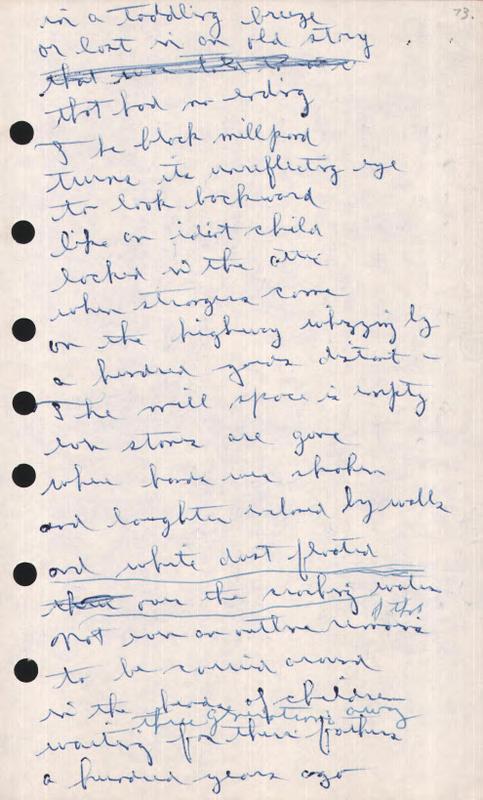 73.
in a toddling breeze
or lost in an old story
that was told
that had no ending
The black millpond
turns its unreflecting eye
to look backward
like an idiot child
locked in the attic
when strangers come
on the highway whizzing by
a hundred yards distant –
The mill space is empty
even stones are gone
where hands were shaken
and laughter enclosed by walls
and white dust floated
there over the rushing water
of this
not even an outline remains
to be carried around
in the heads of children
three generations away
waiting for their fathers
a hundred years ago